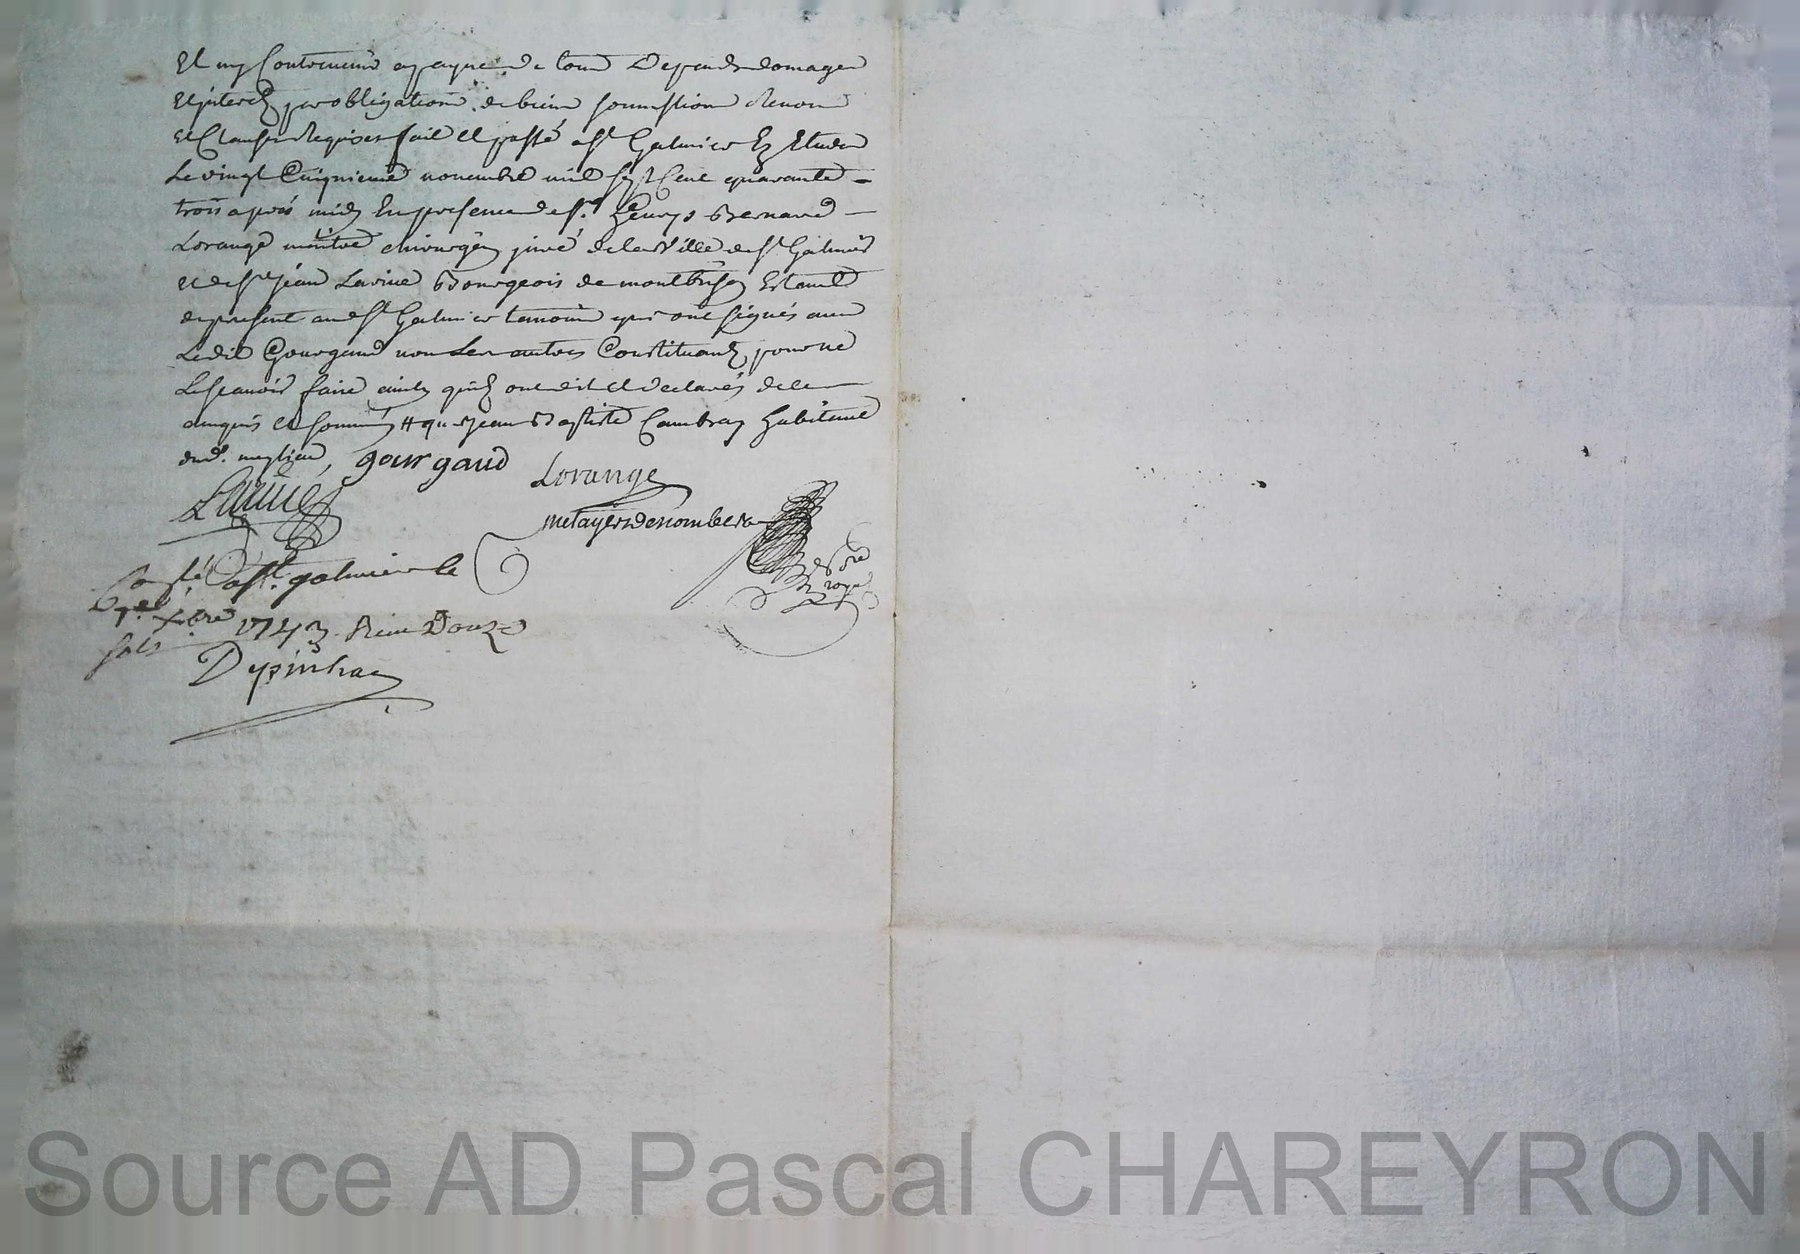 Et
a payne de tous Depends domages
et interets par obligation de biens soumission Renon
et Clauses Requises fait et passé a St Galmier Ez Etudes
Le vingt Cinquieme novembre mil sept Cent quarante
trois après midy En presence de sr. Henrys Bernard
Lorange maitre chirurgien juré de la Ville de St Galmier
et de sr jean Lavine Bourgeois de montbrison Estant
de present aud St Galmier temoins qui ont signés avec
Ledit Gourgaud non Les autres Constituants pour ne
Le scavoir faire ainsy quils ont dit et declarés de ce
enquis et sommés # que jean Baptiste Cambray habitant
gourgaud Lorange
Lavine
metayer denombera
Conslé a St. galmier le
xbre 1743 Reçu Douze
sols